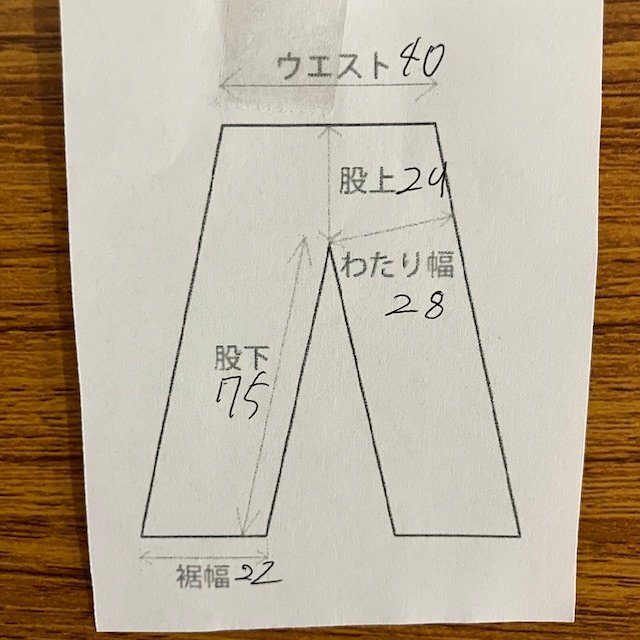 ウエスト 40
股上 24
わたり幅
28
股下
75
裾幅 22